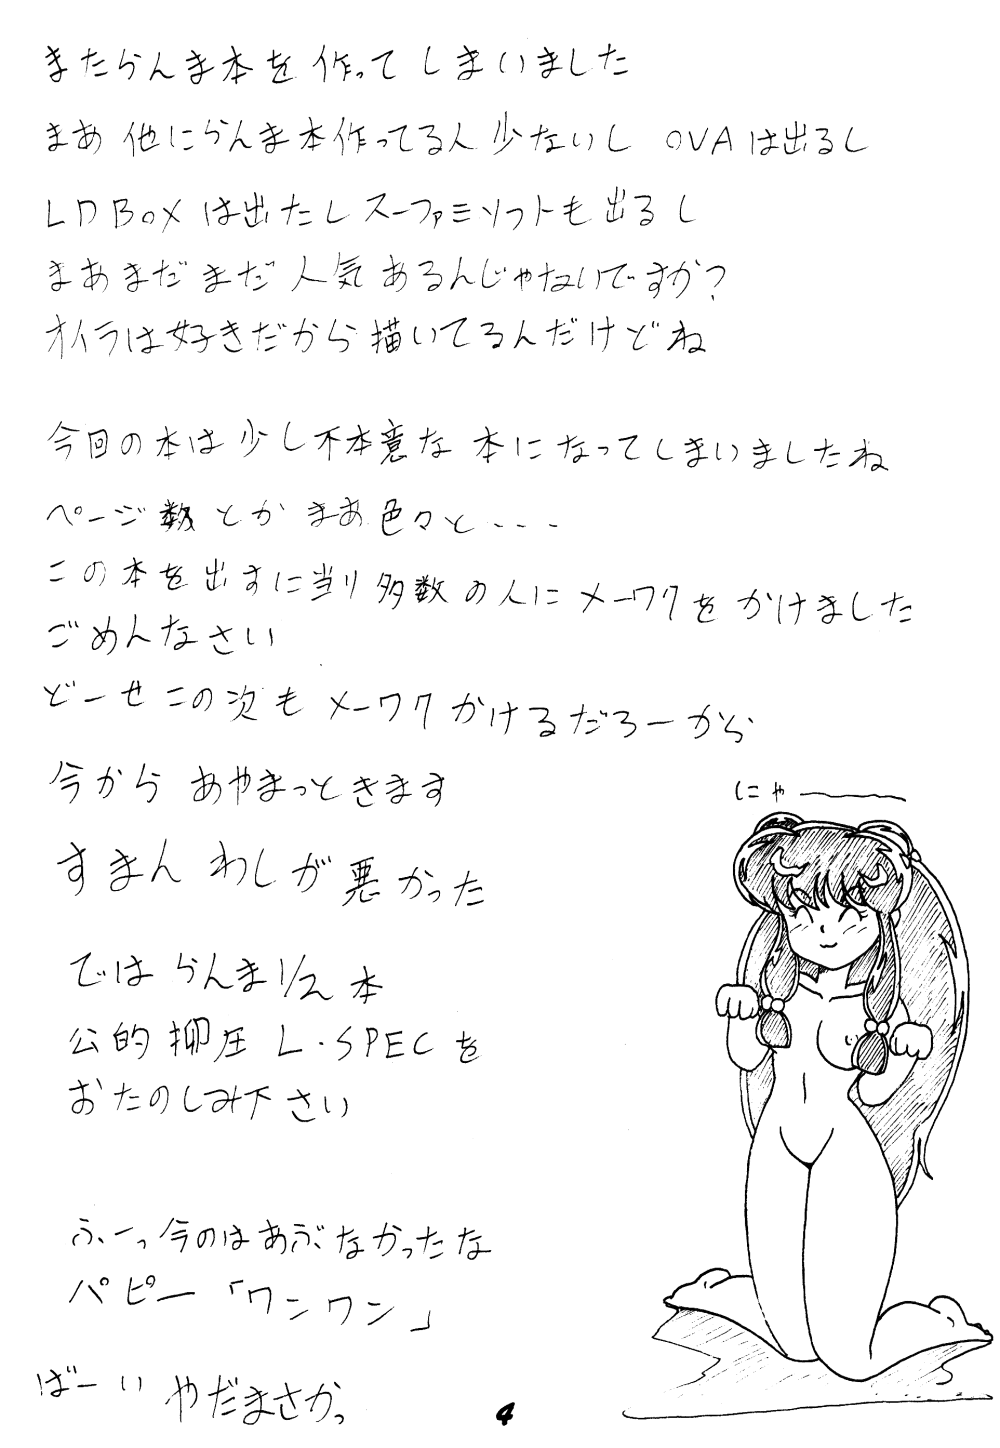 またらんま本を作ってしまいました
まあ他にらんま本作ってる人少ないし OVAは出るし
LD BOXは出たしスーファミソフトも出るし
まあまだまだ人気あるんじゃないですか?
オイラは好きだから描いてるんだけどね
今回の本は少し不本意な本になってしまいましたね
ページ数とかまあ色々と・・・
この本を出すに当り多数の人にメーワクをかけました
ごめんなさい
どーせこの次もメーワクかけるだろーから
今からあやまっときます
すまんわしが悪かった
にゃ――
では らんま1/2本
公的抑圧 L・SPECを
おたのしみ下さい
ふーっ今のはあぶなかったな
パピー「ワンワン」
ばーい やだまさかっ
4